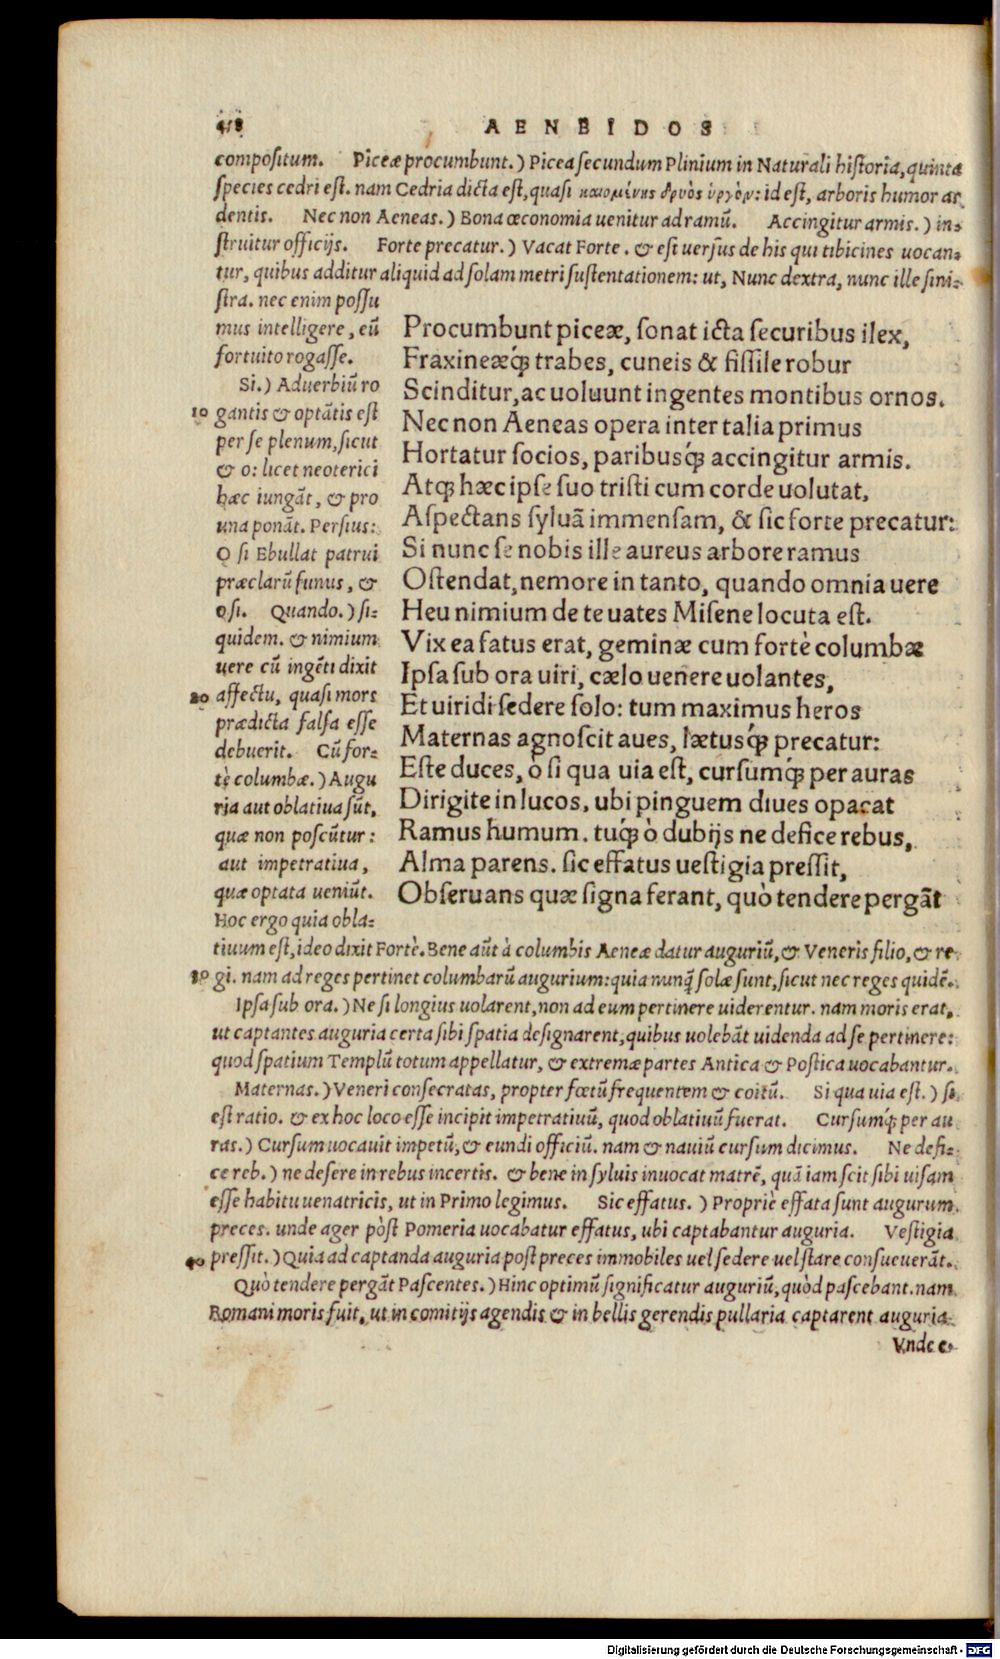 418 AENEIDOS
compositum. Piceæ procumbunt.) Picea secundum Plinium in Naturali historia, quinta
species cedri est. nam Cedria dicta est, quasi καιομένης δρυὸς ὑγρὸν: id est, arboris humor ar
dentis. Nec non Aeneas.) Bona œconomia uenitur ad ramũ. Accingitur armis.) in-
struitur officijs. Forte precatur.) Vacat Forte. & est uersus de his qui tibicines uocan-
tur, quibus additur aliquid ad solam metri sustentationem: ut, Nunc dextra, nunc ille sini-
stra. nec enim possu
mus intelligere, eũ
fortuito rogasse.
Si.) Aduerbiũ ro
10 gantis & optãtis est
per se plenum, sicut
& o: licet neoterici
hæc iungãt, & pro
una ponãt. Persius:
O si Ebullat patrui
præclarũ funus, &
o si. Quando.) si-
quidem. & nimium
uere cũ ingẽti dixit
20 affectu, quasi mors
prædicta falsa esse
debuerit. Cũ for-
tè columbæ.) Augu
ria aut oblatiua sũt,
quæ non poscũtur:
aut impetratiua,
quæ optata ueniũt.
Hoc ergo quia obla-
Procumbunt piceæ, sonat icta securibus ilex,
Fraxineæq́; trabes, cuneis & fissile robur
Scinditur, ac uoluunt ingentes montibus ornos.
Nec non Aeneas opera inter talia primus
Hortatur socios, paribusq́; accingitur armis.
Atq; hæc ipse suo tristi cum corde uolutat,
Aspectans syluã immensam, & sic forte precatur:
Si nunc se nobis ille aureus arbore ramus
Ostendat, nemore in tanto, quando omnia uere
Heu nimium de te uates Misene locuta est.
Vix ea fatus erat, geminæ cum fortè columbæ
Ipsa sub ora uiri, cælo uenere uolantes,
Et uiridi sedere solo: tum maximus heros
Maternas agnoscit aues, lætusq́; precatur:
Este duces, ô si qua uia est, cursumq́; per auras
Dirigite in lucos, ubi pinguem diues opacat
Ramus humum. tuq́; ò dubijs ne defice rebus,
Alma parens. sic effatus uestigia pressit,
Obseruans quæ signa ferant, quò tendere pergãt
tiuum est, ideo dixit Fortè. Bene aũt à columbis Aeneæ datur auguriũ, & Veneris filio, & re-
30 gi. nam ad reges pertinet columbarũ augurium: quia nunq̃ solæ sunt, sicut nec reges quidẽ.
Ipsa sub ora.) Ne si longius uolarent, non ad eum pertinere uiderentur. nam moris erat,
ut captantes auguria certa sibi spatia designarent, quibus uolebãt uidenda ad se pertinere:
quod spatium Templũ totum appellatur, & extremæ partes Antica & Postica uocabantur.
Maternas.) Veneri consecratas, propter fœtũ frequentem & coitũ. Si qua uia est.) si
est ratio. & ex hoc loco esse incipit impetratiuũ, quod oblatiuũ fuerat. Cursumq́; per au
ras.) Cursum uocauit impetũ, & eundi officiũ. nam & nauiũ cursum dicimus. Ne defi-
ce reb.) ne desere in rebus incertis. & bene in syluis inuocat matrẽ, quã iam scit sibi uisam
esse habitu uenatricis, ut in Primo legimus. Sic effatus.) Propriè effata sunt augurum
preces. unde ager pòst Pomeria uocabatur effatus, ubi captabantur auguria. Vestigia
40 pressit.) Quia ad captanda auguria post preces immobiles uel sedere uel stare consueuerãt.
Quò tendere pergãt Pascentes.) Hinc optimũ significatur auguriũ, quòd pascebant. nam
Romani moris fuit, ut in comitijs agendis & in bellis gerendis pullaria captarent auguria.
Vnde e-
Digitalisierung gefördert durch die Deutsche Forschungsgemeinschaft - DFG